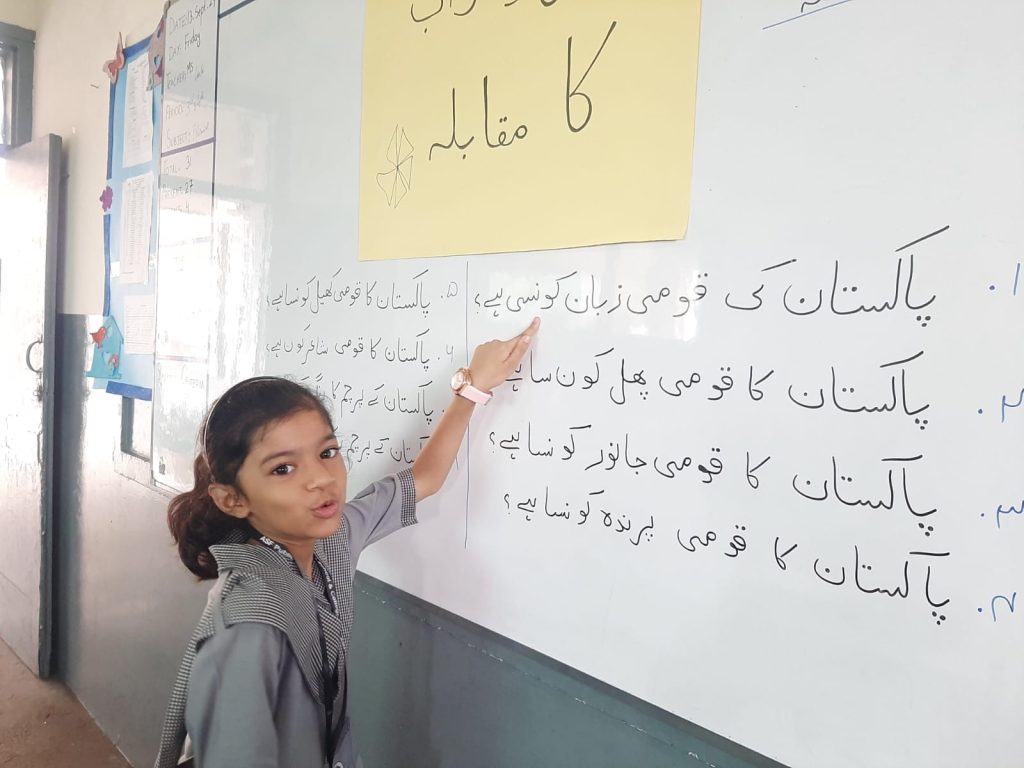 کا
مقابلہ
۱. پاکستان کی قومی زبان کونسی ہے؟
۲. پاکستان کا قومی پھل کون سا ہے
۳. پاکستان کا قومی جانور کونسا ہے؟
۴. پاکستان کا قومی پرندہ کونسا ہے؟
۵. پاکستان کا قومی کھیل کونسا ہے؟
۶. پاکستان کا قومی شاعر کون ہے؟
پاکستان کے پرچم کا
پاکستان کے پرچم
DATE: 13. Sept.
DAY: Friday
TEACHER: MS
PERIOD:
SUBJECT:
TOTAL: 31
PRESENT: 27